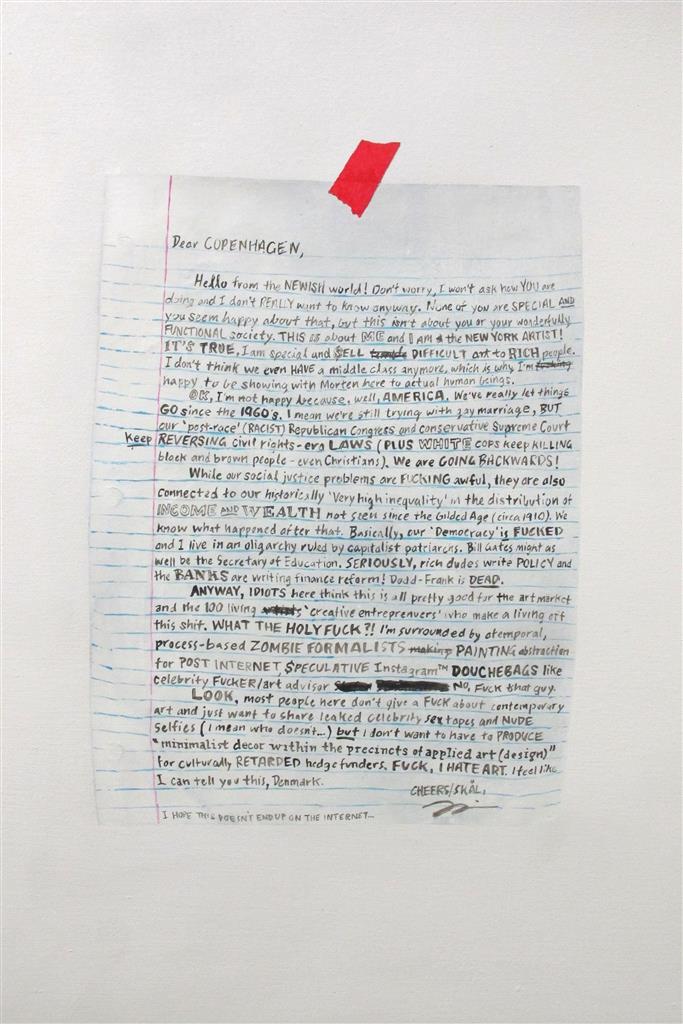 Dear COPENHAGEN,
Hello from the NEWISH world! Don't worry, I won't ask how YOU are
doing and I don't REALLY want to know anyway. None of you are SPECIAL AND
you seem happy about that, but this isn't about you or your wonderfully
FUNCTIONAL society. THIS is about ME and I am a NEW YORK ARTIST!
IT'S TRUE, I am special and $ELL DIFFICULT art to RICH people.
I don't think we even HAVE a middle class anymore, which is why I'm
happy to be showing with Morten here to actual human beings.
OK, I'm not happy because, well, AMERICA. We've really let things
GO since the 1960's, I mean we're still trying with gay marriage, BUT
our 'post-race' (RACIST) Republican Congress and conservative Supreme Court
Keep REVERSING civil rights-era LAWS (PLUS WHITE cops keep KILLING
black and brown people - even Christians). We are GOING BACKWARDS!
While our social justice problems are FUCKING awful, they are also
connected to our historically 'Very high inequality' in the distribution of
INCOME AND WEALTH not seen since the Gilded Age (circa 1910). We
know what happened after that. Basically, our 'Democracy' is FUCKED
and I live in an oligarchy ruled by capitalist patriarchs. Bill Gates might as
well be the Secretary of Education. SERIOUSLY, rich dudes write POLICY and
the BANKS are writing finance reform! Dodd-Frank is DEAD.
ANYWAY, IDIOTS here think this is all pretty good for the art market
and the 100 living 'creative entreprenuers' who make a living off
this shit. WHAT THE HOLY FUCK?! I'm surrounded by atemporal,
process-based ZOMBIE FORMALISTS making PAINTING abstraction
for POST INTERNET, $PECULATIVE Instagram™ DOUCHEBAGS like
celebrity FUCKER/art advisor NO, FUCK that guy.
LOOK, most people here don't give a FUCK about contemporary
art and just want to share leaked celebrity sex tapes and NUDE
Selfies (I mean who doesn't...) but I don't want to have to PRODUCE
"minimalist decor within the precincts of applied art (design)"
for culturally RETARDED hedge funders. FUCK, I HATE ART. I feel like
I can tell you this, Denmark.
CHEERS/SKÅL,
I HOPE THIS DOESN'T END UP ON THE INTERNET...